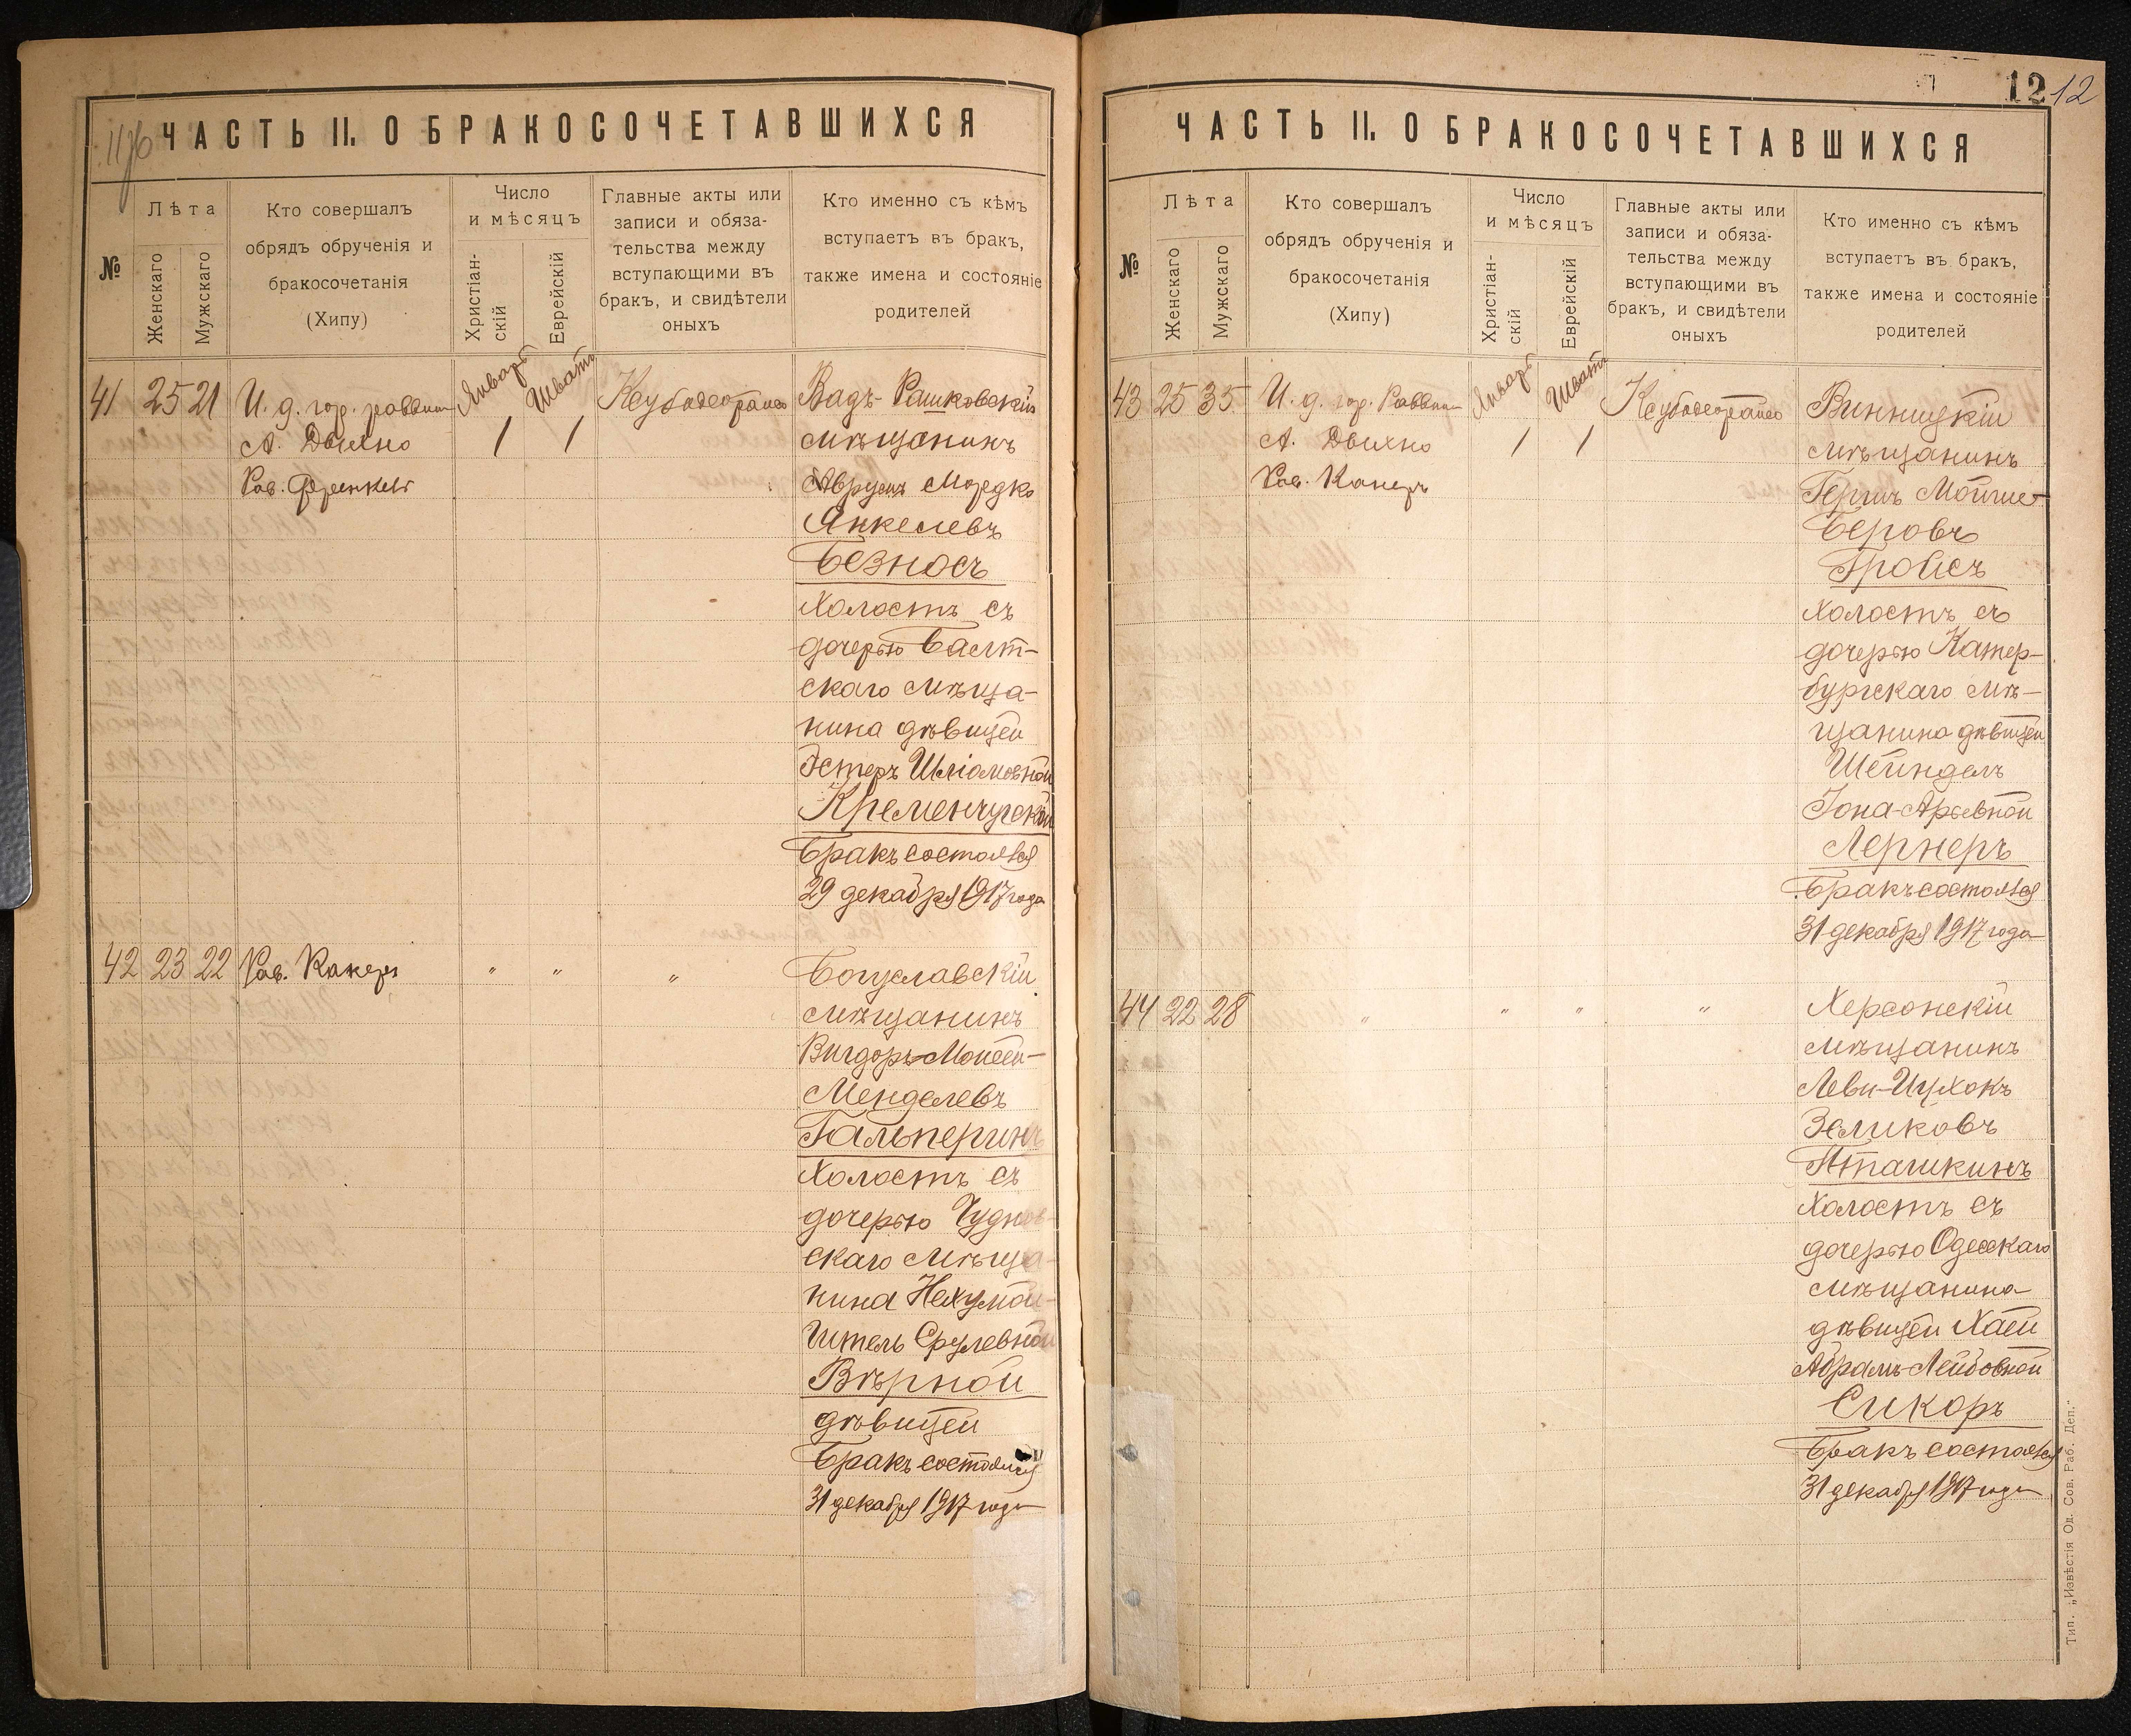 11/б
ЧАСТЬ II. О БРАКОСОЧЕТАВШИХСЯ
№
Лѣта
Женскаго
Мужскаго
Кто совершалъ
обрядъ обрученія и
бракосочетанія
(Хипу)
Число
и мѣсяцъ
Христіан-
скій
Еврейскій
Главные акты или
записи и обяза-
тельства между
вступающими въ
бракъ, и свидѣтели
оныхъ
Кто именно съ кѣмъ
вступаетъ въ бракъ,
также имена и состояніе
родителей
41 25 21 И. д. гор. раввина Январь Шватъ Вадъ-Рашковскій
А. Двихно 1 1 мѣщанинъ
Рав. Френкель Аврумъ Мордко
Янкелевъ
Безносъ
холостъ съ
дочерью Балт-
скаго мѣща-
нина дѣвицей
Эстеръ Шліомовной
Кременчугской
Бракъ состоялся
29 декабря 1917 года
42 23 22 Рав. Канеръ " " " Богуславскій
мѣщанинъ
Вигдоръ-Мошей-
Менделевъ
Гальперинъ
холостъ съ
дочерью Чуднов-
скаго мѣща-
нина Нехумой-
Итель Срулевной
Вѣрной
дѣвицей
Бракъ состоялся
31 декабря 1917 года
12 12
ЧАСТЬ II. О БРАКОСОЧЕТАВШИХСЯ
№
Лѣта
Женскаго
Мужскаго
Кто совершалъ
обрядъ обрученія и
бракосочетанія
(Хипу)
Число
и мѣсяцъ
Христіан-
скій
Еврейскій
Главные акты или
записи и обяза-
тельства между
вступающими въ
бракъ, и свидѣтели
оныхъ
Кто именно съ кѣмъ
вступаетъ въ бракъ,
также имена и состояніе
родителей
43 25 35 И. д. гор. Раввина Январь Шватъ Винницкій
А. Двихно 1 1 мѣщанинъ
Рав. Канеръ Гершъ Мойше-
Беровъ
Гройсъ
холостъ съ
дочерью Катер-
бургскаго мѣ-
щанина дѣвицей
Шейндель
Іона-Арьевной
Лернеръ
Бракъ состоялся
31 декабря 1917 года
44 22 28 " " " " Херсонскій
мѣщанинъ
Леви-Ицхокъ
Зеликовъ
Пташкинъ
холостъ съ
дочерью Одесскаго
мѣщанина
дѣвицей Хаей
Абрамъ-Лейбовной
Сикоръ
Бракъ состоялся
31 декабря 1917 года
Тип. „Извѣстія Од. Сов. Раб. Деп.“